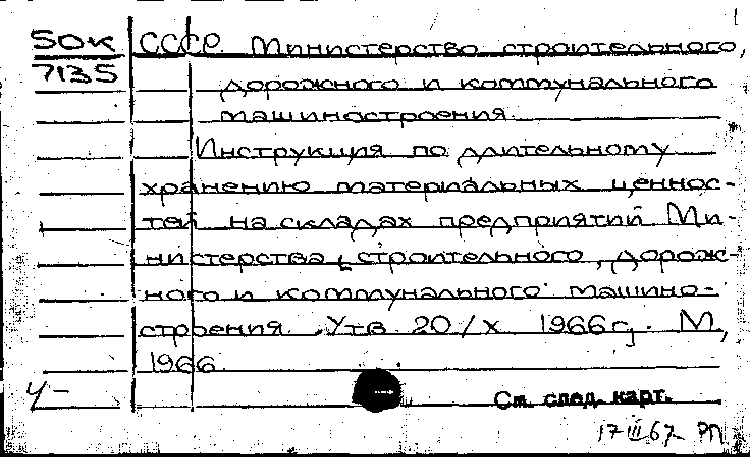 50к СССР Министерство строительного,
7135 дорожного и коммунального
машиностроения.
Инструкция по длительному
хранению материальных ценнос-
тей на складах предприятий Ми-
нистерства строительного, дорож-
ного и коммунального машино-
строения. Утв. 20/X 1966г. М.,
1966.
Ч-
См. след. карт.
17 III 67 РП